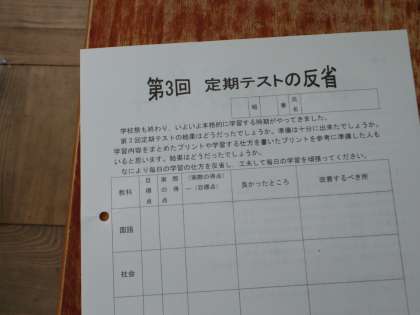 第3回 定期テストの反省
組 番 氏名
学校祭も終わり、いよいよ本格的に学習する時期がやってきました。
第3回定期テストの結果はどうだったでしょうか。準備は十分に出来たでしょうか。
学習内容をまとめたプリントや学習する仕方を書いたプリントを参考に準備した人も
いると思います。結果はどうだったでしょうか。
なにより毎日の学習の仕方を反省し、工夫して毎日の学習を頑張ってください。
教科 目標の点 実際の得点 (実際の得点)－(目標点) 良かったところ 改善するべき所
国語
社会